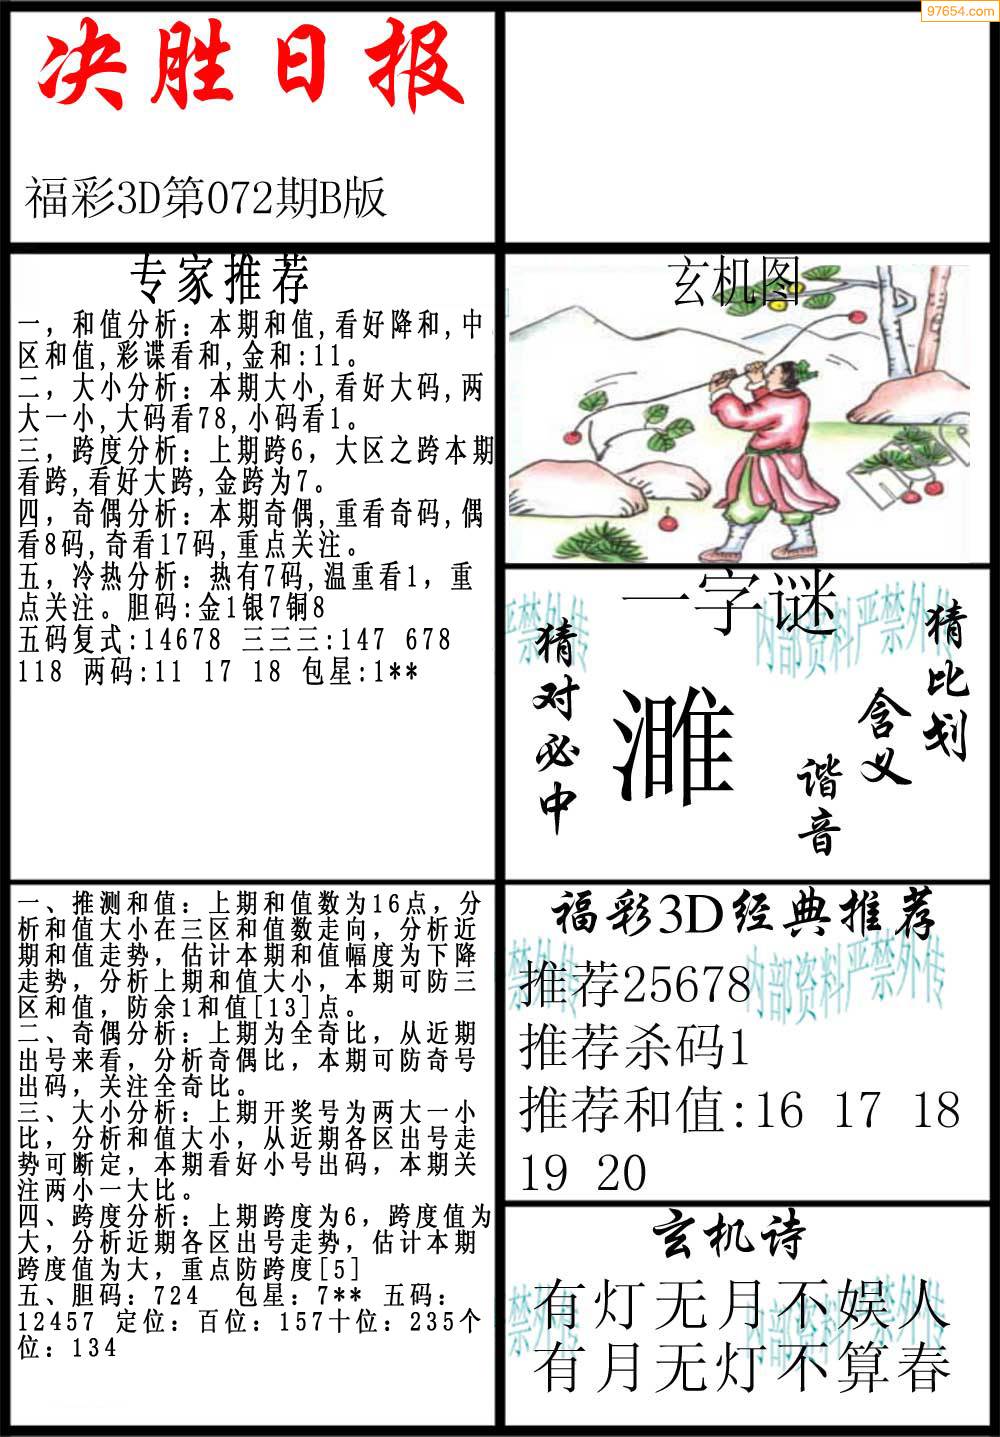 97654.com
决胜日报
福彩3D第072期B版
专家推荐
一，和值分析：本期和值,看好降和,中
区和值,彩谍看和,金和:11。
二，大小分析：本期大小,看好大码,两
大一小,大码看78,小码看1。
三，跨度分析：上期跨6，大区之跨本期
看跨,看好大跨,金跨为7。
四，奇偶分析：本期奇偶,重看奇码,偶
看8码,奇看17码,重点关注。
五，冷热分析：热有7码,温重看1，重
点关注。胆码:金1银7铜8
五码复式:14678 三三三:147 678
118 两码:11 17 18 包星:1**
玄机图
一字谜
猜对必中
濉
谐音
含义
猜比划
内部资料严禁外传
一、推测和值：上期和值数为16点，分
析和值大小在三区和值数走向，分析近
期和值走势，估计本期和值幅度为下降
走势，分析上期和值大小，本期可防三
区和值，防余1和值[13]点。
二、奇偶分析：上期为全奇比，从近期
出号来看，分析奇偶比，本期可防奇号
出码，关注全奇比。
三、大小分析：上期开奖号为两大一小
比，分析和值大小，从近期各区出号走
势可断定，本期看好小号出码，本期关
注两小一大比。
四、跨度分析：上期跨度为6，跨度值为
大，分析近期各区出号走势，估计本期
跨度值为大，重点防跨度[5]
五、胆码：724 包星：7** 五码：
12457 定位：百位：157十位：235个
位：134
福彩3D经典推荐
推荐25678
推荐杀码1
推荐和值:16 17 18
19 20
内部资料严禁外传
玄机诗
有灯无月不娱人
有月无灯不算春
内部资料严禁外传